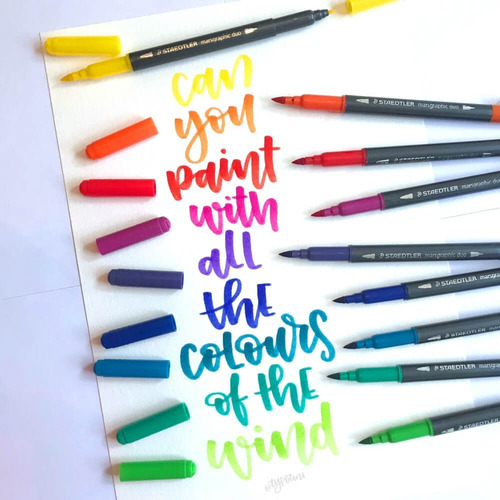 STAEDTLER marsgraphic duo
can
you
paint
with
all
the
colours
of the
wind
STAEDTLER marsgraphic duo
STAEDTLER marsgraphic duo
STAEDTLER
STAEDTLER marsgraphic duo
STAEDTLER marsgraphic duo
STAEDTLER
STAEDTLER marsgraphic duo
STAEDTLER